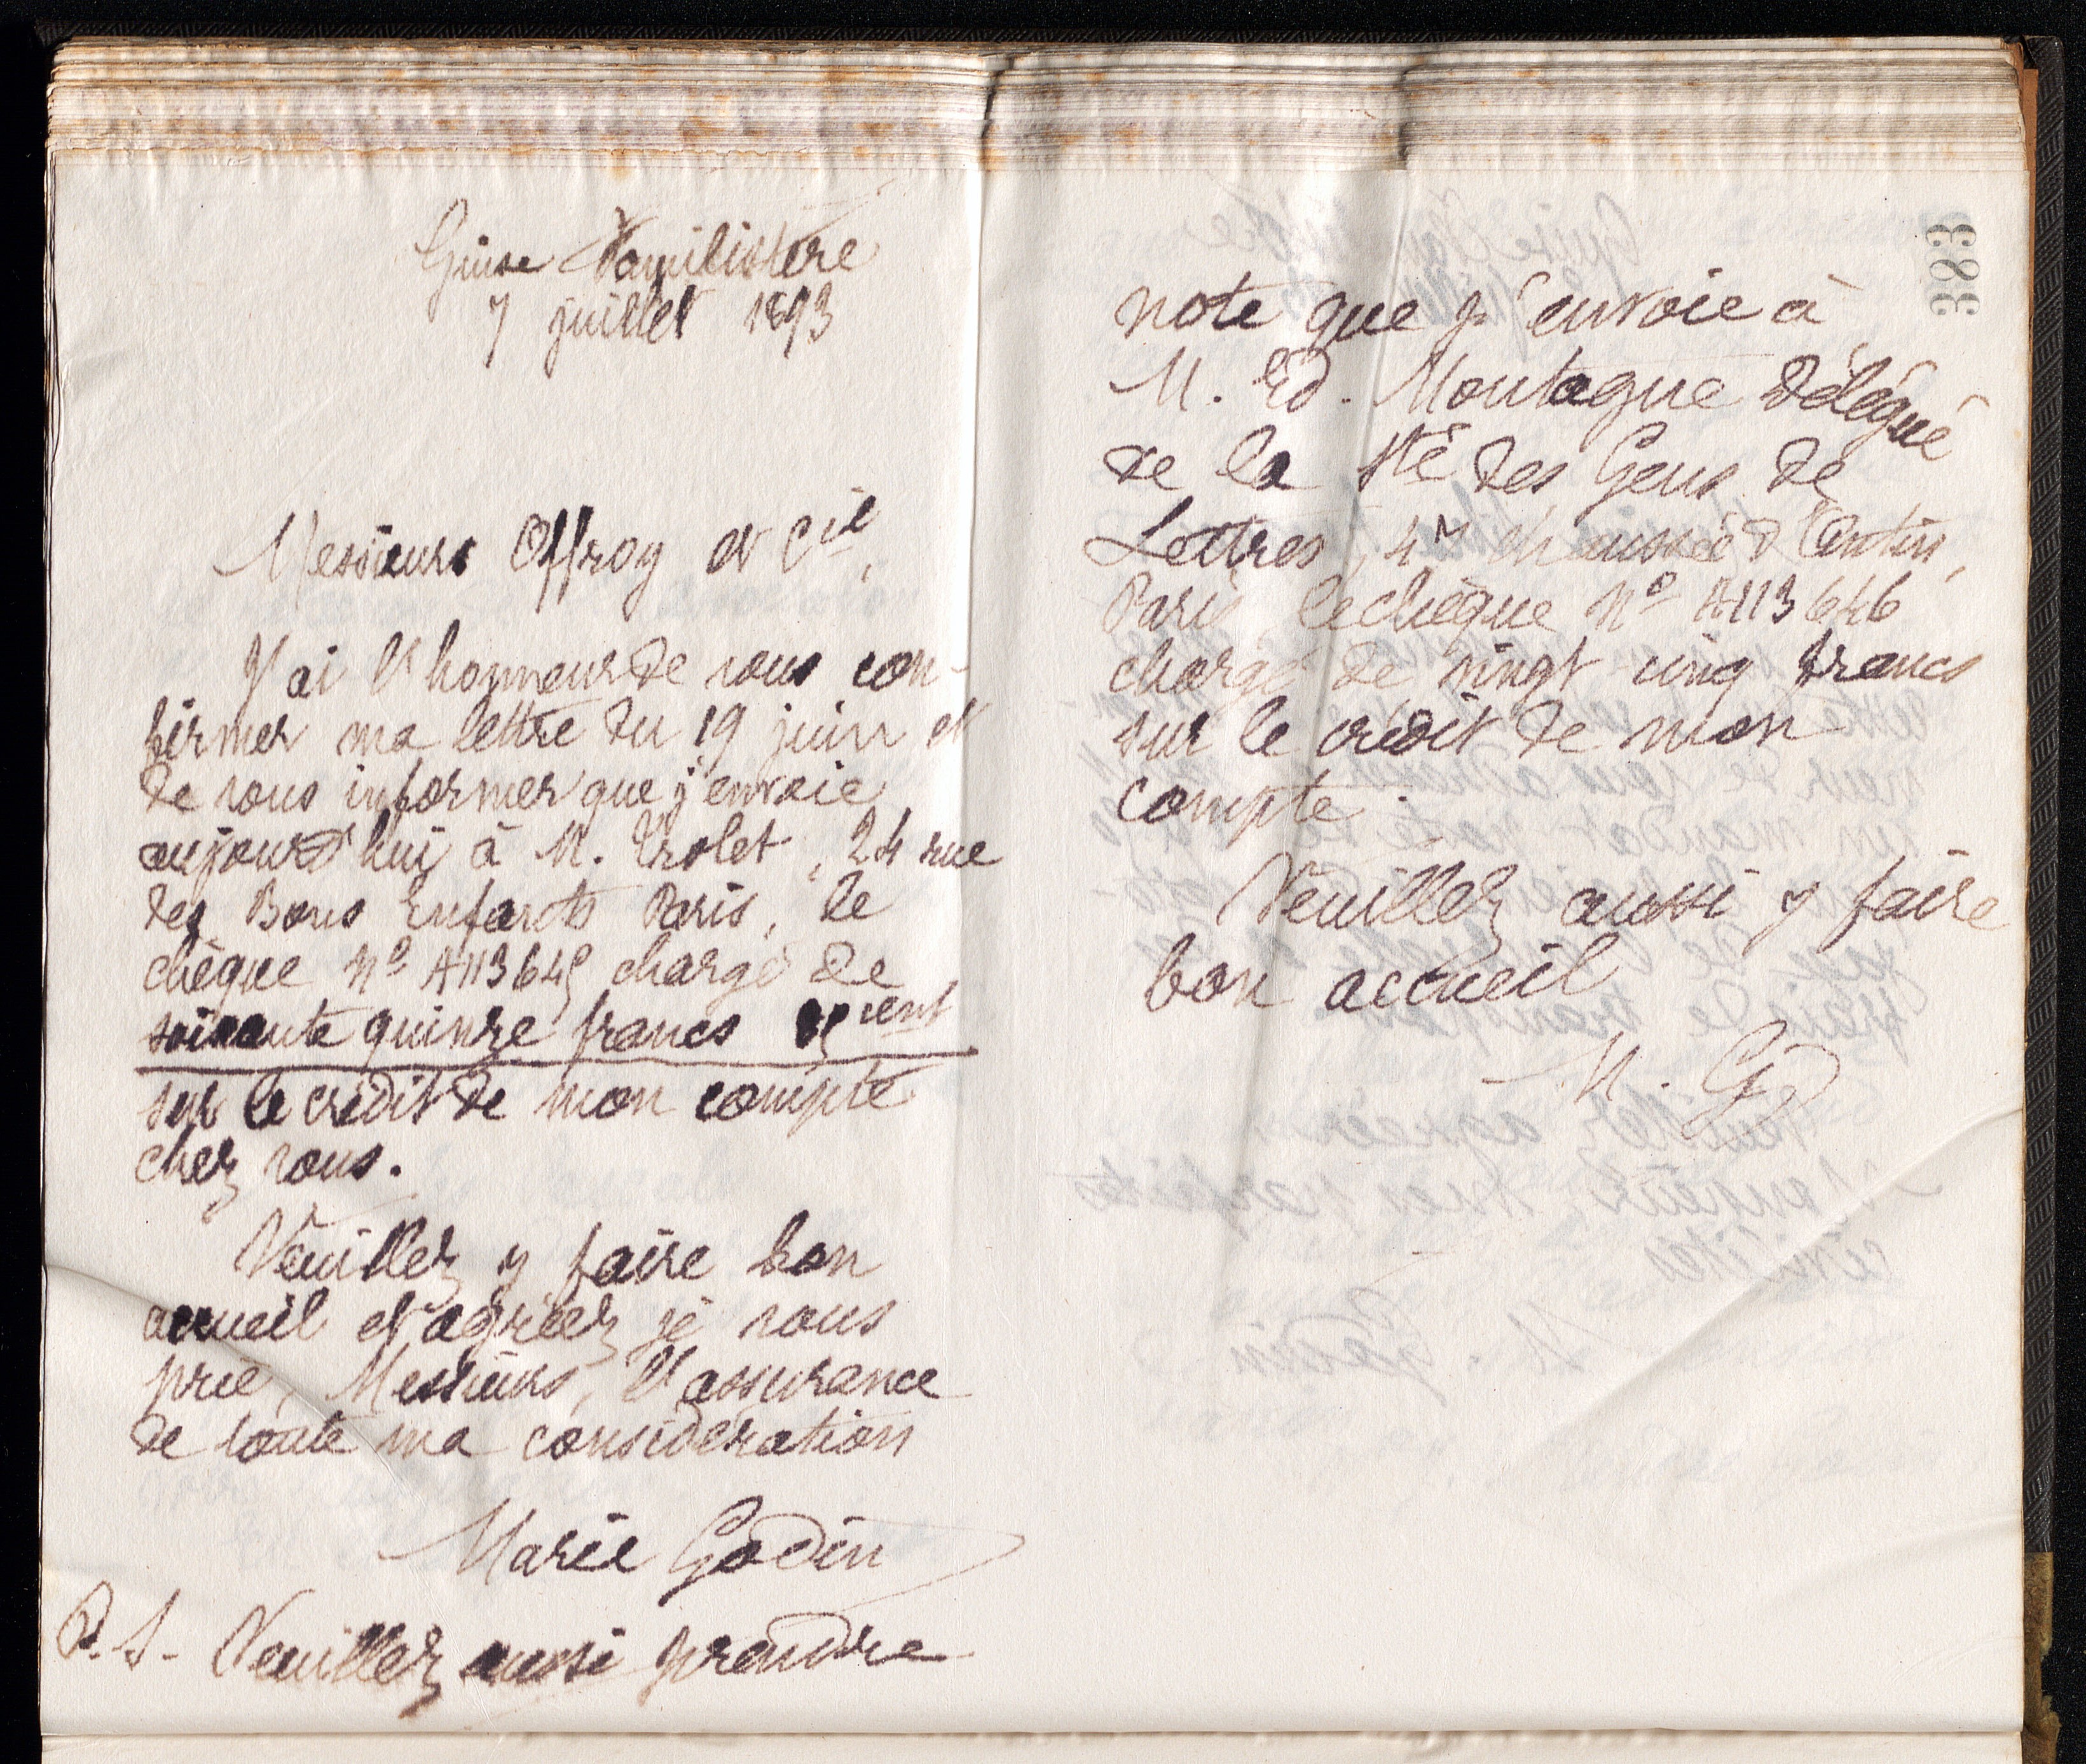 Guise Familistère
7 juillet 1893
Messieurs Offroy et Cie,
J'ai l'honneur de vous con-
firmer ma lettre du 19 juin et
de vous informer que j'envoie
aujourd'hui à M. Trolet, 24 rue
des Bons Enfants Paris, le
chèque No A113645 chargé de
soixante quinze francs cent
sur le crédit de mon compte
chez vous.
Veuillez y faire bon
accueil et agréer, je vous
prie, Messieurs, l'assurance
de toute ma considération
Marie Godin
P.S. Veuillez aussi prendre
383
note que j'envoie à
M. Ed. Montagne délégué
de la Sté des Gens de
Lettres, 47 chaussée d'Antin,
Paris, le chèque No A113646
chargé de vingt cinq francs
sur le crédit de mon
compte.
Veuillez aussi y faire
bon accueil
M. GD